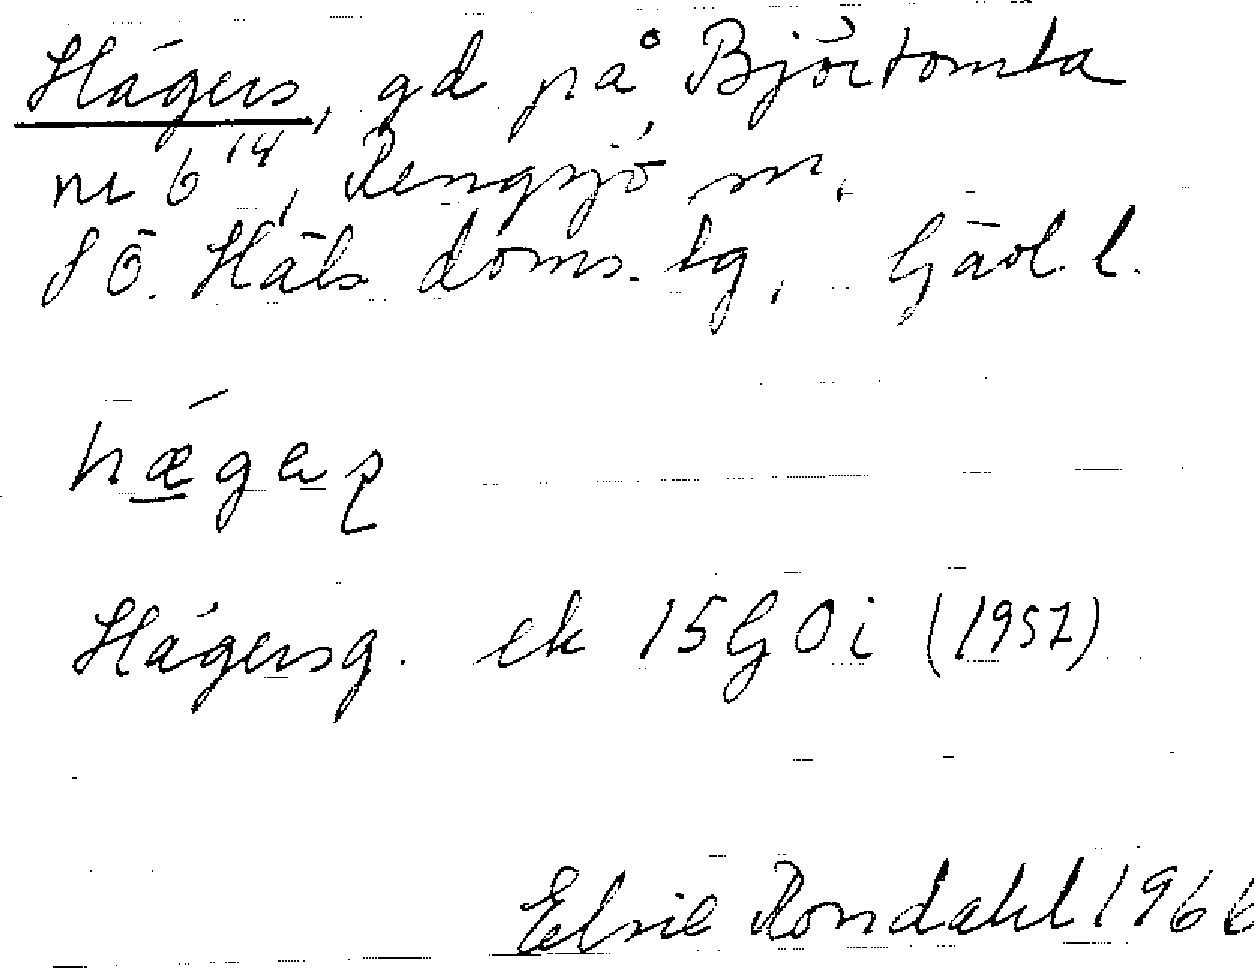 Hägers, gd på Björtomta
nr 6¹⁴, Rengsjö sn,
SÖ. Häls doms. tg, Gävl. l.
hǽgaʂ
Hägersg. ek 15G0i (1957)
Elsie Rondahl 1966